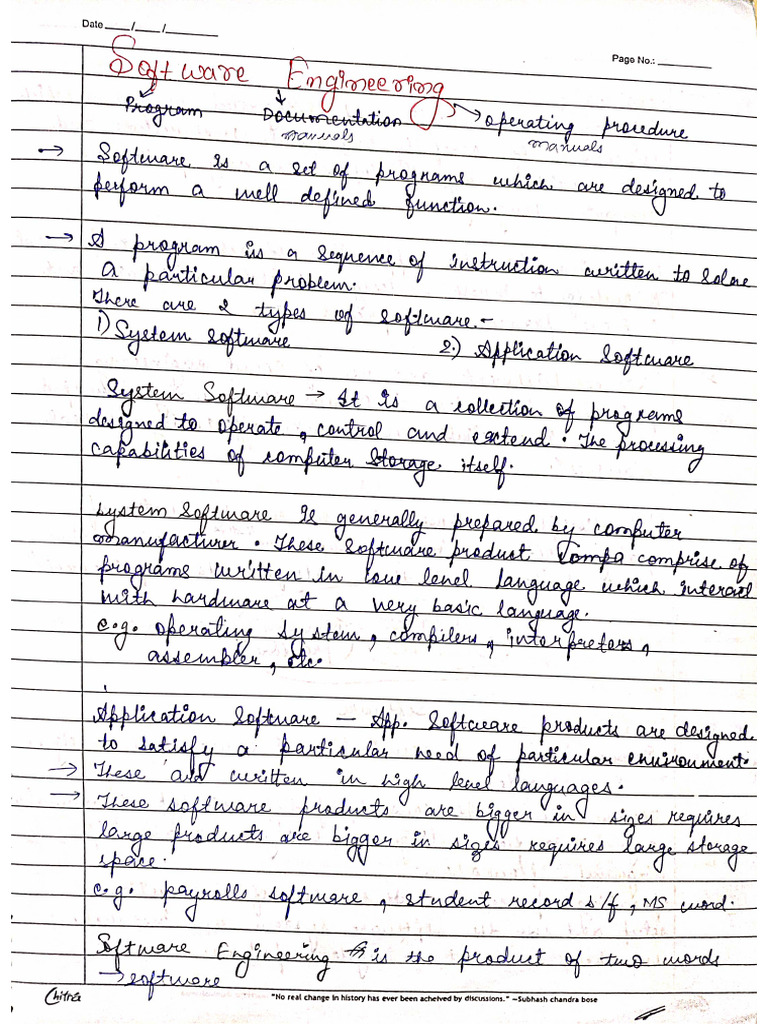 Date ___/___/______
Page No.: ________
Software Engineering
Program Documentation operating procedure
manuals manuals
→ Software is a set of programs which are designed to
perform a well defined function.
→ A program is a sequence of instruction written to solve
a particular problem.
There are 2 types of software.-
1) System software 2.) Application Software
System Software → It is a collection of programs
designed to operate, control and extend. The processing
capabilities of computer storage itself.
System software is generally prepared by computer
manufacturer. These software product Compa comprise of
programs written in low level language which interact
with hardware at a very basic language.
e.g. operating system, compilers, interpreters,
assembler, etc.
Application Software — App. Software products are designed
to satisfy a particular need of particular environment.
→ These are written in high level languages.
→ These software products are bigger in sizes requires
large products are bigger in sizes requires large storage
space.
e.g. payrolls software, student record s/f, MS word.
Software Engineering is the product of two words
→ software
Chitra
"No real change in history has ever been acheived by discussions." –Subhash chandra bose